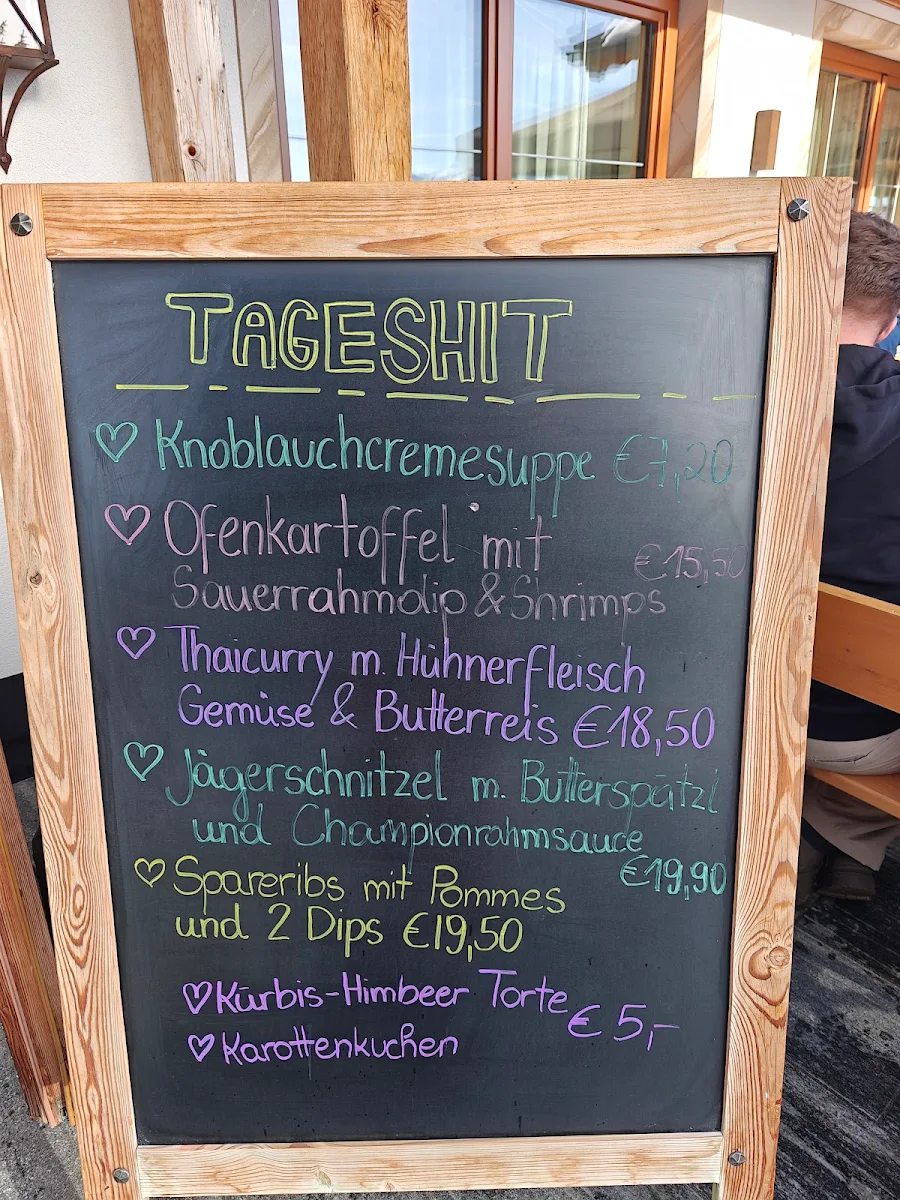 TAGESHIT
♡ Knoblauchcremesuppe €7,20
♡ Ofenkartoffel mit
Sauerrahmdip & Shrimps €15,50
♡ Thaicurry m. Hühnerfleisch
Gemüse & Butterreis €18,50
♡ Jägerschnitzel m. Butterspätzl
und Championrahmsauce
€19,90
♡ Spareribs mit Pommes
und 2 Dips €19,50
♡ Kürbis-Himbeer Torte € 5,-
♡ Karottenkuchen